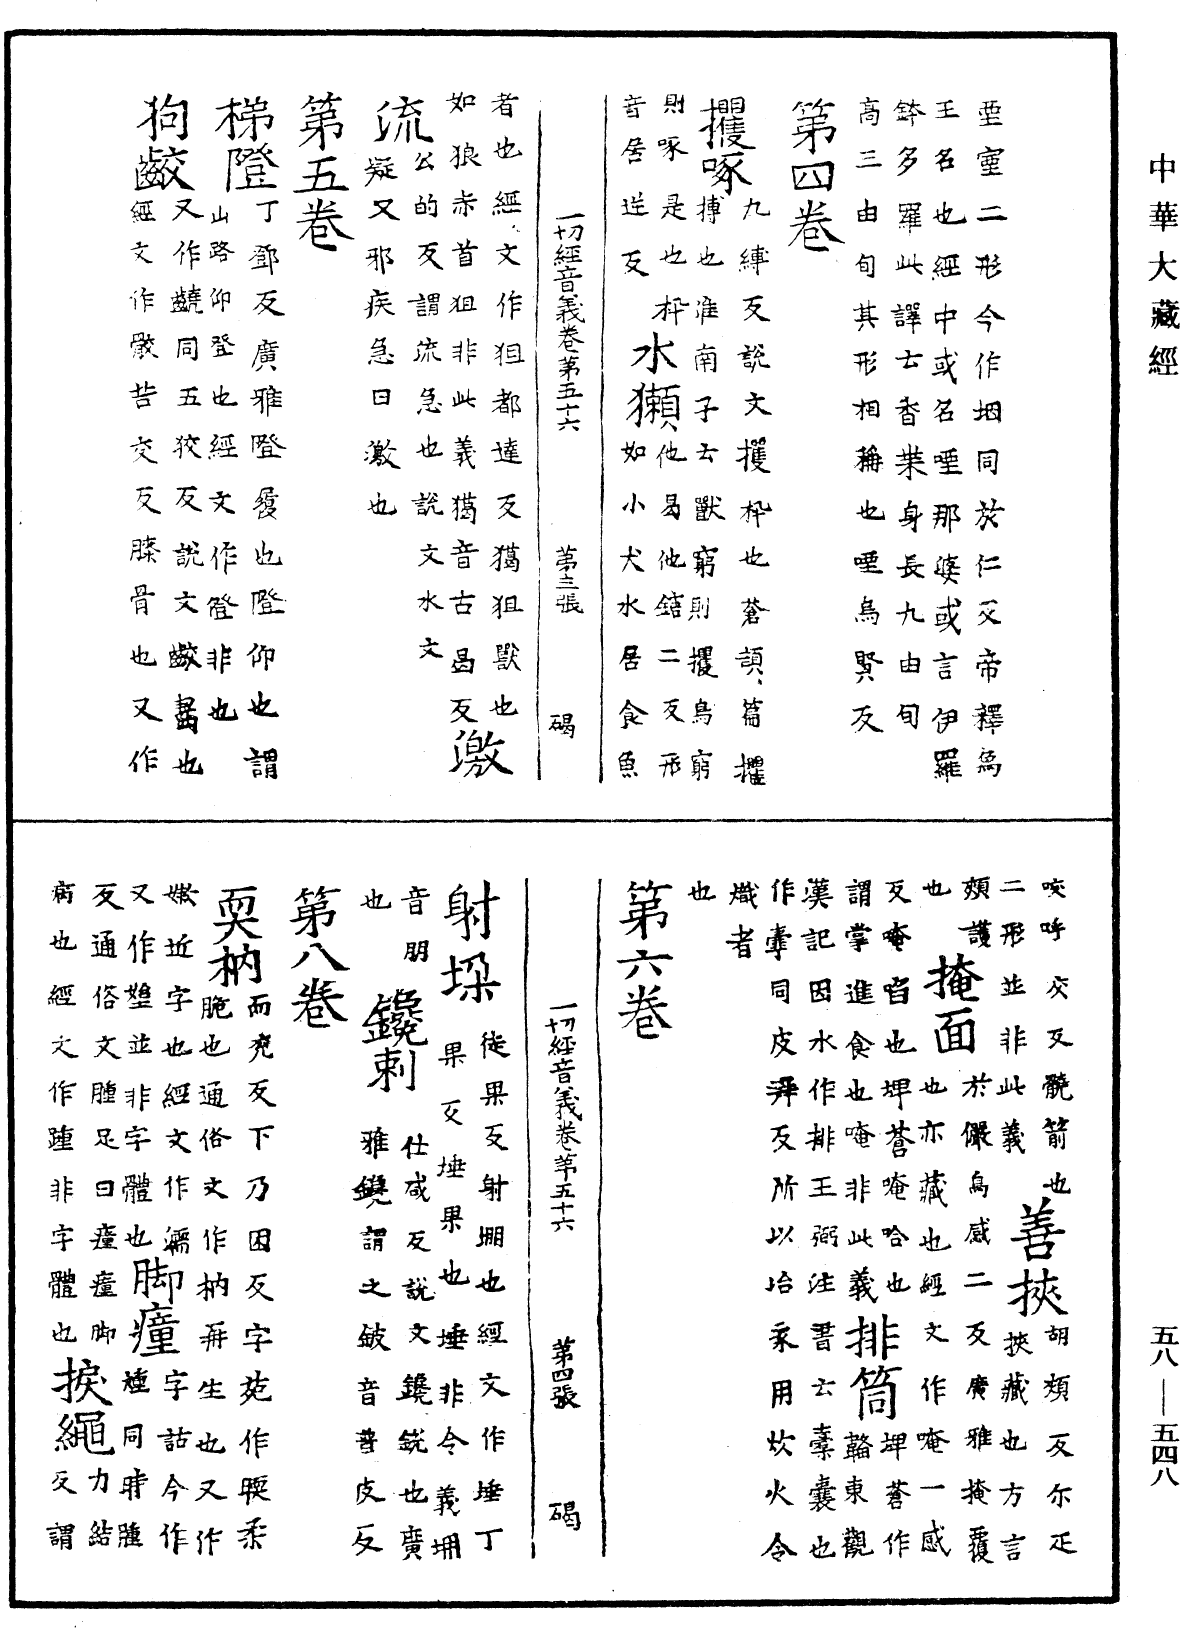 中華大藏經
垔窒二形今作堙同於仁反帝釋鳥
王名也經中或名堙那婆或言伊羅
鉢多羅此譯士香葉身長九由旬
高三由旬其形相稱也堙烏賢反
第四卷
攫啄 九縛反說文攫枠也蒼頡篇攫
搏也淮南子云獸窮則攫鳥窮
則啄是也枠
音居逆反 水獺 他曷他鎋二反形
如小犬水居食魚
一切經音義卷第五十六 第三張 碣
者也經文作狚都達反獦狚獸也
如狼赤首狚非此義獦音古曷反 激
流 公的反謂流急也說文水文
疑又邪疾急曰激也
第五卷
梯隥 丁鄧反廣雅隥履也隥仰也謂
山路仰登也經文作嶝非也
狗齩 又作齩同五狡反說文齩齧也
經文作骹苦交反膝骨也又作
咬呼交反髐箭也 善挾 胡頰反尒疋
挾藏也方言
二形並非此義
頰護
也 掩面 於儼烏感二反廣雅掩覆
也亦藏也經文作唵一感
反唵啗也埤蒼唵唅也 排筒 埤蒼作
韛東觀
謂掌進食也唵非此義
漢記因水作排王弼注書云橐囊也
作橐同皮拜反所以冶家用炊火令
熾者
也
第六卷
一切經音義卷第五十六 第四張 碣
射垛 徒果反射堋也經文作埵丁
果反埵果也埵非今義堋
音朋
也 鑱刺 仕咸反說文鑱銳也廣
雅鑱謂之鈹音普皮反
第八卷
耎枘 而兗反下乃困反字苑作腝柔
脆也通俗文作枘再生也又作
媆近字也經文作濡
又作㷟並非字體也 脚瘇 字詁今作
㾽同時腫
反通俗文腫足曰瘇瘇脚
病也經文作踵非字體也 捩繩 力結
反謂
五八—五四八